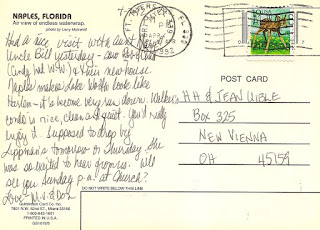 NAPLES, FLORIDA
Air view of endless waterway.
photo by Larry
Had a nice visit with Aunt
Uncle Bill yesterday - saw
Candy and W.W. & their new house.
Naples makes Lake Wales look like
Harlem - it's become very run down.
condo is nice, clean and quiet. You'd really
enjoy it. Supposed to drop by
Lippman's tomorrow or Thursday. She
was so excited to hear from us. Will
see you Sunday p.m. at Church?
Love, M.V. & Don
FT MYERS FL
PM
APR
POST CARD
H H & JEAN UIBLE
Box 325
NEW VIENNA
OH 45159
DO NOT WRITE BELOW THIS LINE
Gulfstream Card Co. Inc.
PRINTED IN U.S.A.